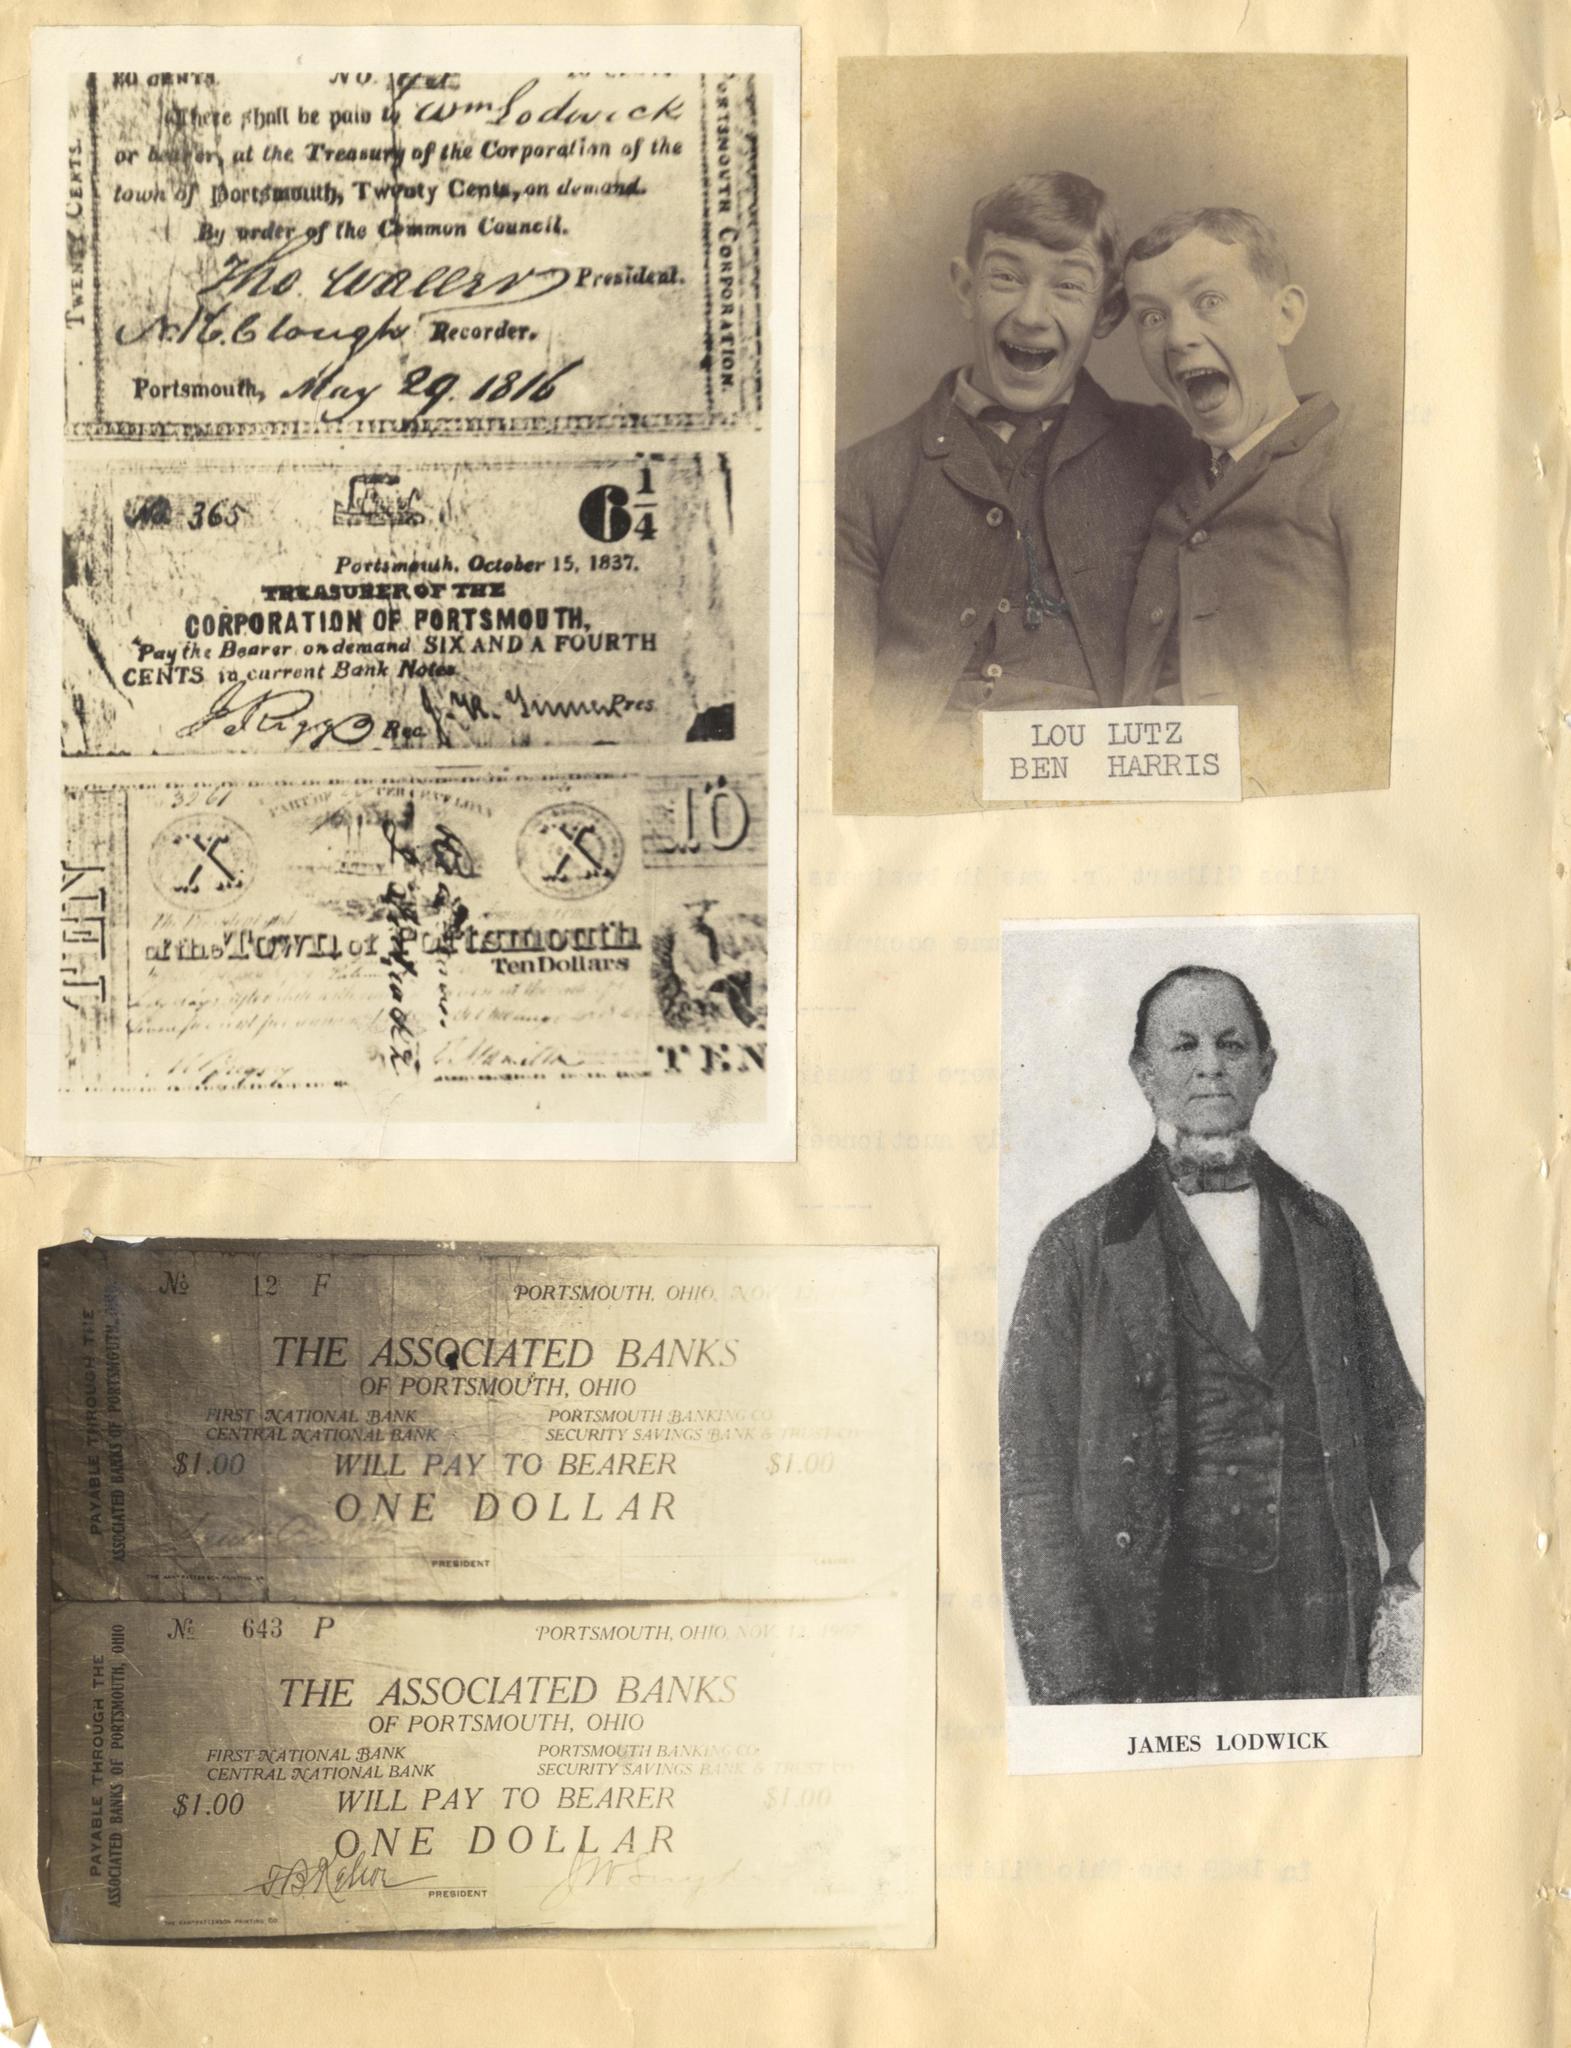 No.
There shall be paid to Wm Lodwick
or bearer, at the Treasury of the Corporation of the
town of Portsmouth, Twenty Cents, on demand.
By order of the Common Council.
Tho. Waller President.
N.K. Clough Recorder.
Portsmouth, May 29. 1816
TWENTY CENTS.
PORTSMOUTH CORPORATION.
No 365
6 1/4
Portsmouth, October 15, 1837.
TREASURER OF THE
CORPORATION OF PORTSMOUTH,
Pay the Bearer on demand SIX AND A FOURTH
CENTS in current Bank Notes
Rec. Pres
3261
X X
10
of the Town of Portsmouth
Ten Dollars
TEN
TEN
LOU LUTZ
BEN HARRIS
JAMES LODWICK
PAYABLE THROUGH THE
ASSOCIATED BANKS OF PORTSMOUTH, OHIO
No 12 F PORTSMOUTH, OHIO, NOV.
THE ASSOCIATED BANKS
OF PORTSMOUTH, OHIO
FIRST NATIONAL BANK PORTSMOUTH BANKING CO.
CENTRAL NATIONAL BANK SECURITY SAVINGS BANK & TRUST CO.
$1.00 WILL PAY TO BEARER $1.00
ONE DOLLAR
PRESIDENT
PAYABLE THROUGH THE
ASSOCIATED BANKS OF PORTSMOUTH, OHIO
No 643 P PORTSMOUTH, OHIO, NOV. 12, 1907
THE ASSOCIATED BANKS
OF PORTSMOUTH, OHIO
FIRST NATIONAL BANK PORTSMOUTH BANKING CO.
CENTRAL NATIONAL BANK SECURITY SAVINGS BANK & TRUST CO.
$1.00 WILL PAY TO BEARER $1.00
ONE DOLLAR
PRESIDENT